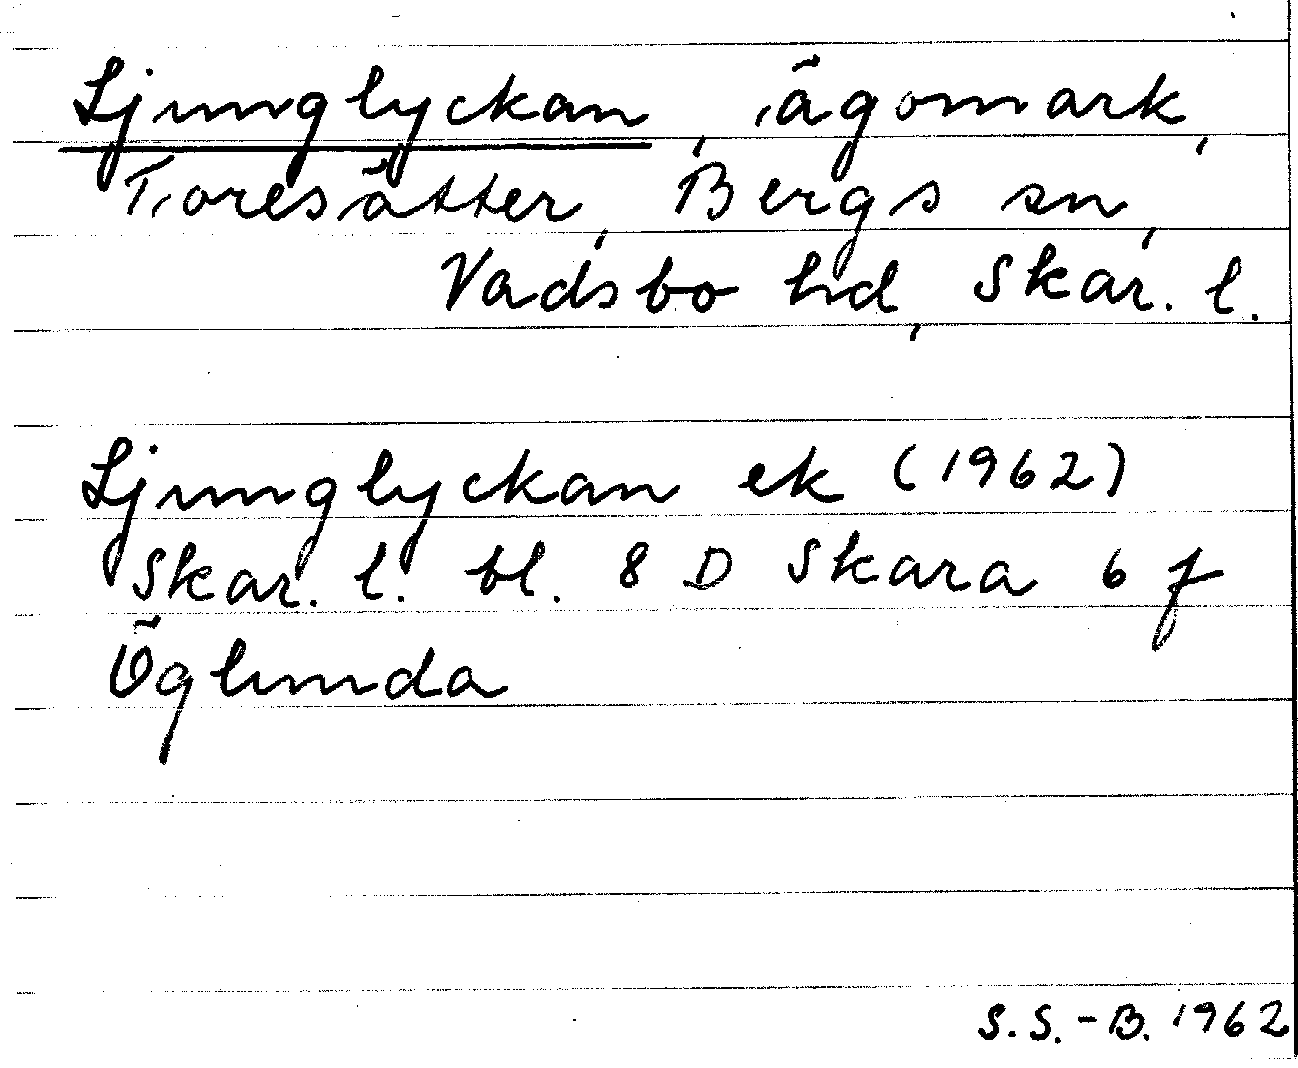 Ljunglyckan, ägomark,
Toresätter, Bergs sn,
Vadsbo hd, Skar. l.
Ljunglyckan ek (1962)
Skar. l. bl. 8 D Skara 6 f
Öglunda
S.S.-B. 1962